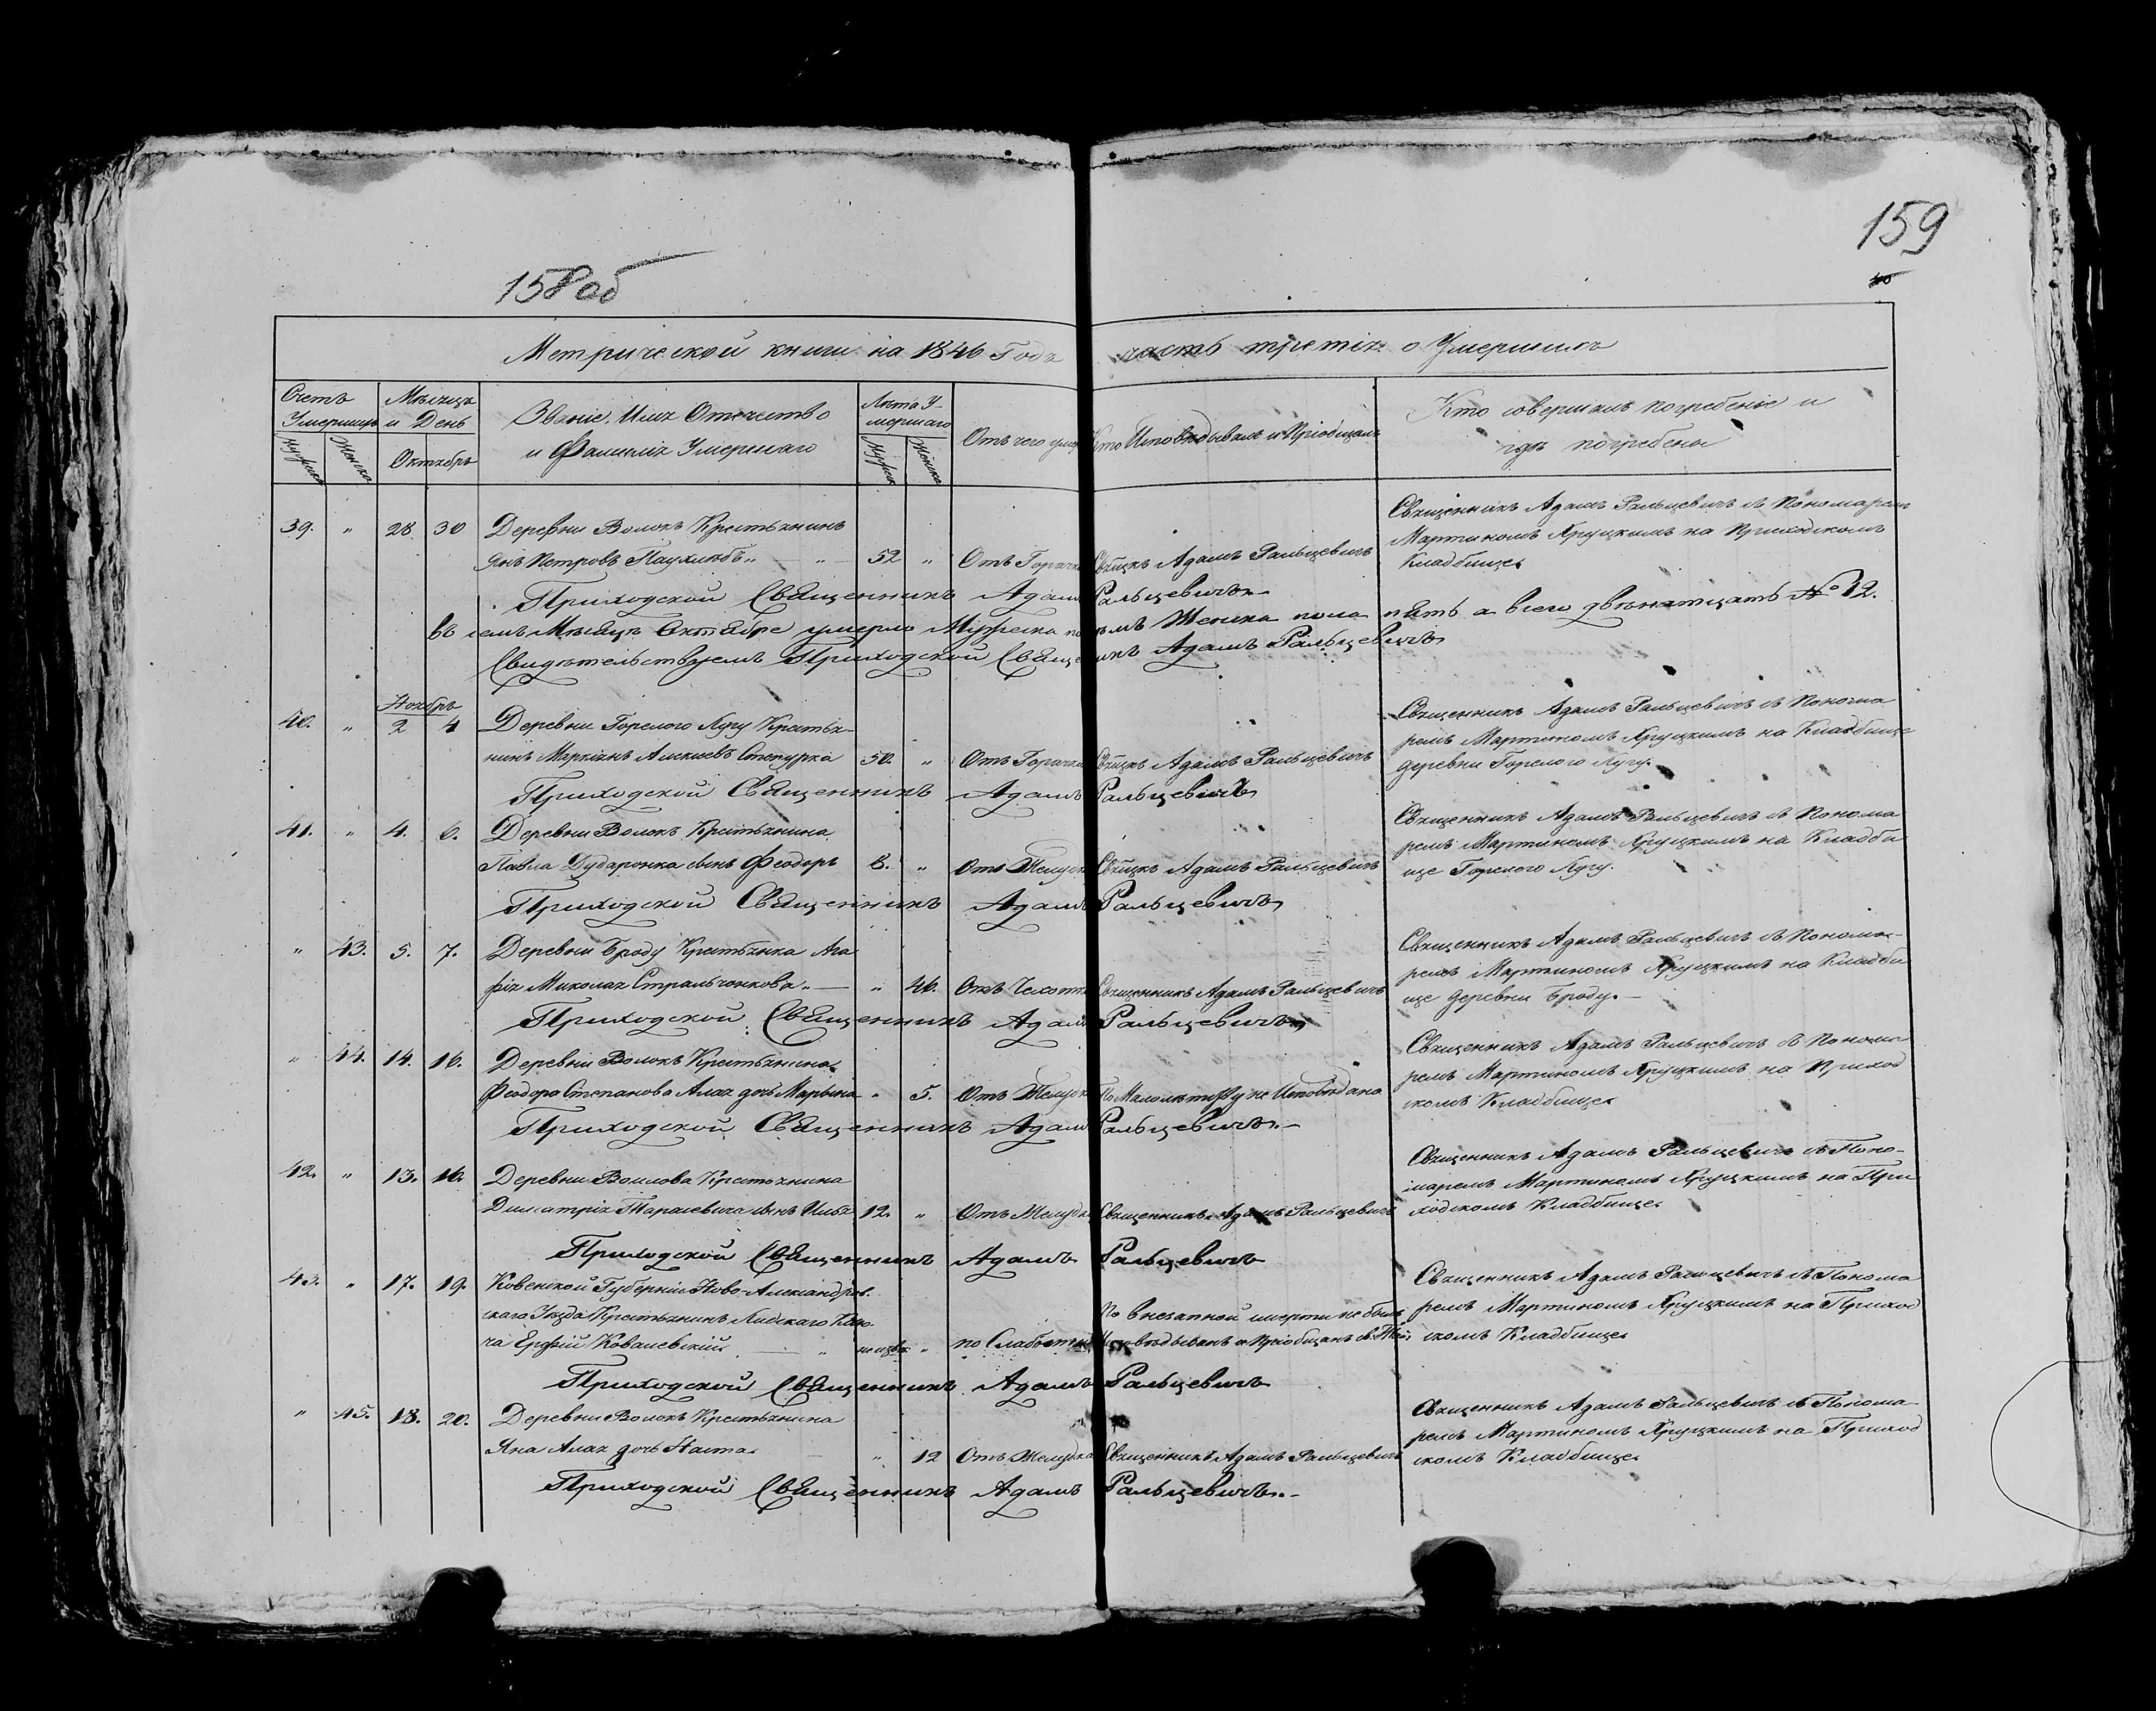 159
158 об
Метрической книги на 1846 Годъ часть третія о Умершихъ
Счетъ Умершихъ
Мѣсяцъ и День
Званіе, Имя Отечество и Фамилія Умершаго
Лѣта Умершаго
Отъ чего умеръ
Кто Исповѣдывалъ и Пріобщалъ
Кто совершалъ погребеніе и гдѣ погребены
Мужска Женска Октябрь Мужска Женска
39. " 28 30 Деревни Волокъ Крестьянинъ
Янъ Петровъ Паухлюбъ " 52 " Отъ Горячки Свящкъ Адамъ Ральцевичъ
Священникъ Адамъ Ральцевичъ съ Пономаремъ
Мартиномъ Хруцкимъ на Приходскомъ
Кладбищѣ
Приходской Священникъ Адамъ Ральцевичъ
въ семъ Мѣсяцѣ Октябре умерло Мужеска Женска пола пять а всего двѣнатцать № 12.
Свидѣтельствуемъ Приходской Священникъ Адамъ Ральцевичъ
Ноябрь
40. " 2 4 Деревни Горелого Лугу Крестья-
нинъ Маркіянъ Алексіевъ Степурка 50. " Отъ Горячки Свящкъ Адамъ Ральцевичъ
Священникъ Адамъ Ральцевичъ съ Понома
ремъ Мартиномъ Хруцкимъ на Кладбище
деревни Горелого Лугу.
Приходской Священникъ Адамъ Ральцевичъ
41. " 4. 6. Деревни Волокъ Крестьянина
Павла Дударонка сынъ Феодоръ 8. " Отъ Желудка Свящкъ Адамъ Ральцевичъ
Священникъ Адамъ Ральцевичъ съ Понома
ремъ Мартиномъ Хруцкимъ на Кладби
ще Горелого Лугу.
Приходской Священникъ Адамъ Ральцевичъ
" 43. 5. 7. Деревни Броду Крестьянка Ага
фія Миколая Стральчонкова " 46. Отъ Чехотки Священникъ Адамъ Ральцевичъ
Священникъ Адамъ Ральцевичъ съ Понома-
ремъ Мартиномъ Хруцкимъ на Кладби
ще деревни Броду.
Приходской Священникъ Адамъ Ральцевичъ
" 44. 14. 16. Деревни Волокъ Крестьянина
Феодора Степанова Алая дочь Марьяна " 5. Отъ Желудка По Малолѣтству не Исповѣдана
Священникъ Адамъ Ральцевичъ съ Понома
ремъ Мартиномъ Хруцкимъ на Приход
скомъ Кладбище
Приходской Священникъ Адамъ Ральцевичъ
42. " 13. 16. Деревни Воилова Крестьянина
Димитрія Тарасевича сынъ Илья 12. " Отъ Желудка Священникъ Адамъ Ральцевичъ
Священникъ Адамъ Ральцевичъ съ Поно-
маремъ Мартиномъ Хруцкимъ на При
ходскомъ Кладбище
Приходской Священникъ Адамъ Ральцевичъ
43. " 17. 19. Ковенской Губерніи Ново-Александров.
скаго Уѣзда Крестьянинъ
Ковалевскій " неизвѣ " по Слабости
По внезапной смерти не былъ
Исповѣдыванъ и Пріобщанъ
Священникъ Адамъ Ральцевичъ съ Понома
ремъ Мартиномъ Хруцкимъ на Приход
скомъ Кладбище
Приходской Священникъ Адамъ Ральцевичъ
" 45. 18. 20. Деревни Волокъ Крестьянина
Яна Алая дочь Наста " 12 Отъ Желудка Священникъ Адамъ Ральцевичъ
Священникъ Адамъ Ральцевичъ съ Понома-
ремъ Мартиномъ Хруцкимъ на Приход
скомъ Кладбище
Приходской Священникъ Адамъ Ральцевичъ